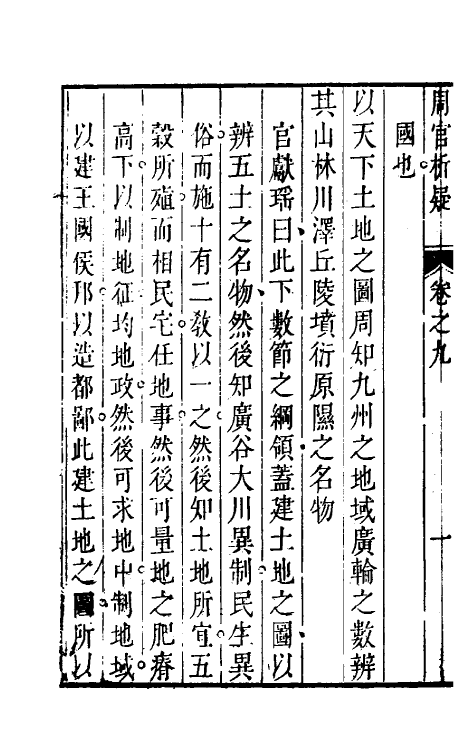 周官析疑 卷之九 一
國也
以天下土地之圖周知九州之地域廣輪之數辨
其山林川澤丘陵墳衍原隰之名物
官獻瑶曰此下數節之綱領蓋建土地之圖以
辨五土之名物然後知廣谷大川異制民生異
俗而施十有二敎以一之然後知土地所宜五
穀所殖而相民宅任地事然後可量地之肥瘠
高下以制地征均地政然後可求地中制地域
以建王國侯邦以造都鄙此建土地之圖所以